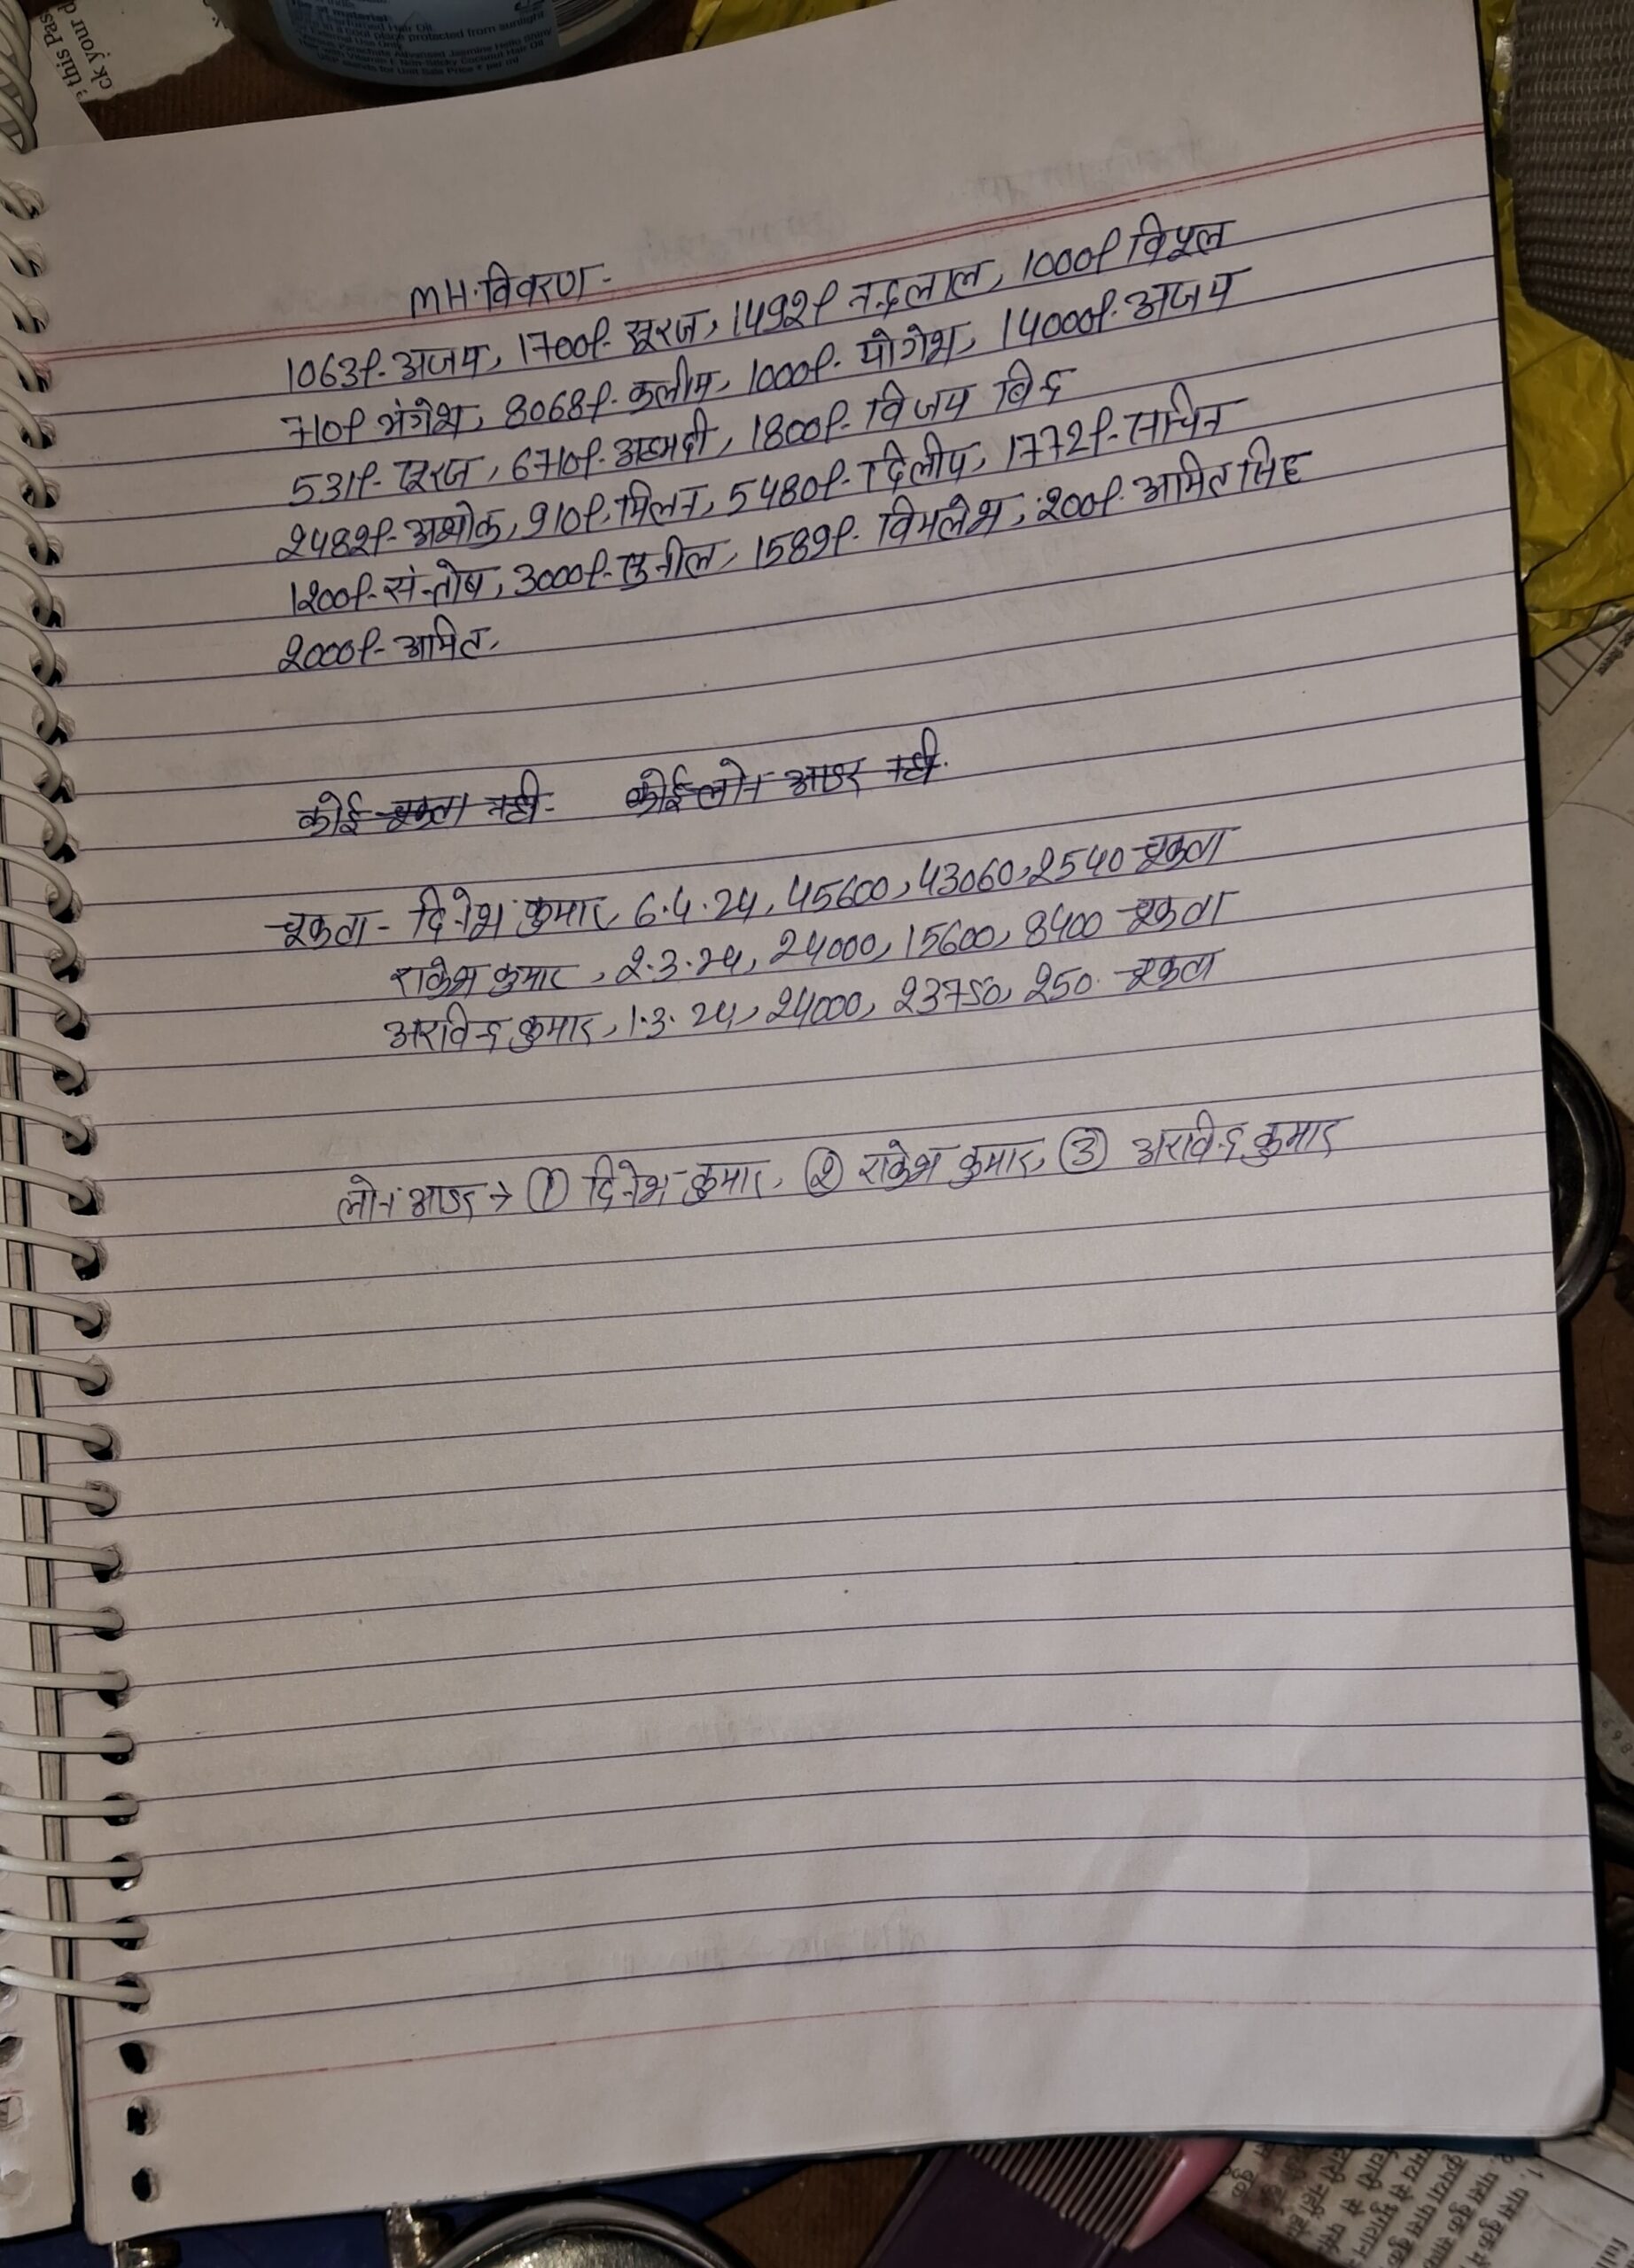 Use of material
protected from sunlight
External Use Only
this Pas
ck your d
MH.विवरण -
1063/- अजय, 1700/- सूरज, 1492/- नन्दलाल, 1000/- विपूल
710/- मंगेश, 8068/- कलीम, 1000/- योगेश, 14000/- अजय
531/- सूरज, 6710/- अहमदी, 1800/- विजय बिंद
2482/- अशोक, 910/- मिलन, 5480/- दिलीप, 1772/- सचिन
1200/- संतोष, 3000/- सुनील, 1589/- विमलेश, 200/- अमित सिंह
2000/- अमित,
कोई चूकता नही - कोई लोन आडर नही.
चूकता - दिनेश कुमार, 6.4.24, 45600, 43060, 2540 चूकता
राकेश कुमार, 2.3.24, 24000, 15600, 8400 चूकता
अरविन्द कुमार, 1.3.24, 24000, 23750, 250. चूकता
लोन आडर → ① दिनेश कुमार, ② राकेश कुमार, ③ अरविन्द कुमार